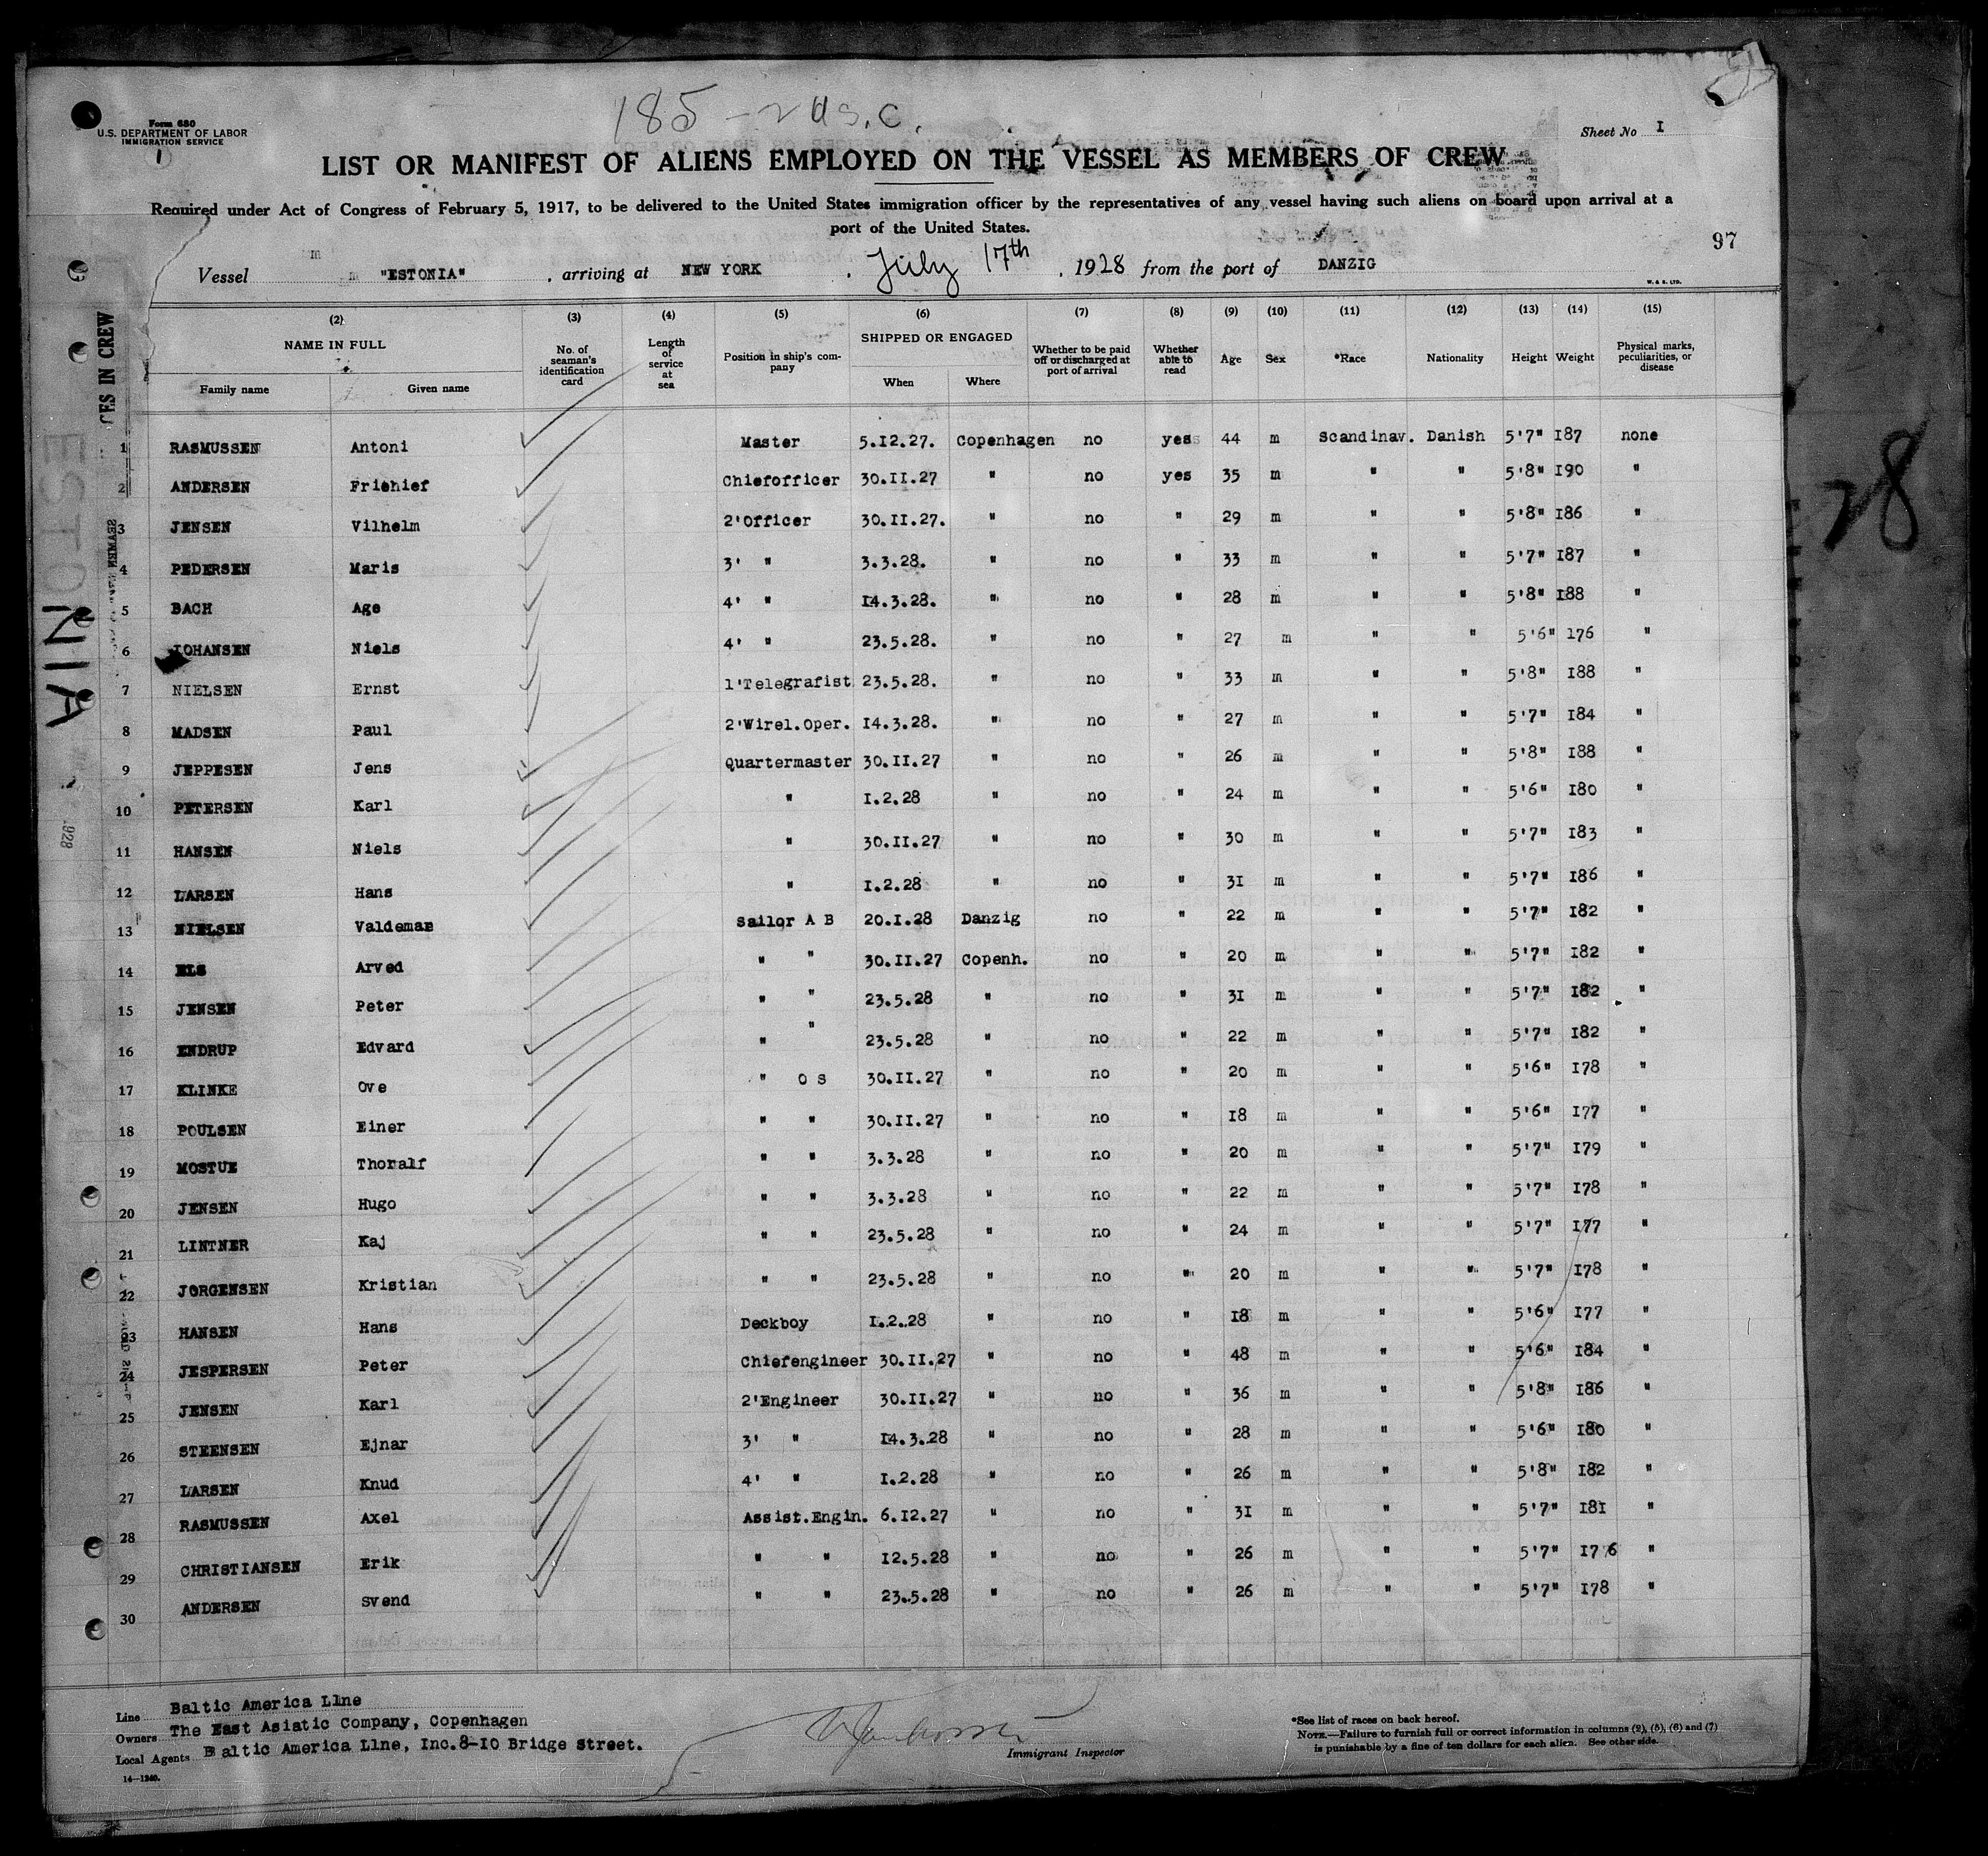 185 - 2 U.S.C.
Form 680
U.S. DEPARTMENT OF LABOR
IMMIGRATION SERVICE
1
Sheet No I
LIST OR MANIFEST OF ALIENS EMPLOYED ON THE VESSEL AS MEMBERS OF CREW
Required under Act of Congress of February 5, 1917, to be delivered to the United States immigration officer by the representatives of any vessel having such aliens on board upon arrival at a
port of the United States.
97
Vessel "ESTONIA", arriving at NEW YORK, July 17th, 1928 from the port of DANZIG
W. & S. LTD.
(2) (3) (4) (5) (6) (7) (8) (9) (10) (11) (12) (13) (14) (15)
NAME IN FULL No. of seaman's identification card Length of service at sea Position in ship's company SHIPPED OR ENGAGED Whether to be paid off or discharged at port of arrival Whether able to read Age Sex *Race Nationality Height Weight Physical marks, peculiarities, or disease
Family name Given name When Where
1 RASMUSSEN Antoni Master 5.12.27. Copenhagen no yes 44 m Scandinav. Danish 5'7" I87 none
2 ANDERSEN Frithief Chiefofficer 30.II.27 " no yes 35 m " " 5'8" I90 "
3 JENSEN Vilhelm 2'Officer 30.II.27. " no " 29 m " " 5'8" I86 "
4 PEDERSEN Maris 3' " 3.3.28. " no " 33 m " " 5'7" I87 "
5 BACH Age 4' " I4.3.28. " no " 28 m " " 5'8" I88 "
6 JOHANSEN Niels 4' " 23.5.28. " no " 27 m " " 5'6" I76 "
7 NIELSEN Ernst 1'Telegrafist 23.5.28. " no " 33 m " " 5'8" I88 "
8 MADSEN Paul 2'Wirel.Oper. I4.3.28. " no " 27 m " " 5'7" I84 "
9 JEPPESEN Jens Quartermaster 30.II.27 " no " 26 m " " 5'8" I88 "
10 PETERSEN Karl " I.2.28 " no " 24 m " " 5'6" I80 "
11 HANSEN Niels " 30.II.27 " no " 30 m " " 5'7" I83 "
12 LARSEN Hans " I.2.28 " no " 3I m " " 5'7" I86 "
13 NIELSEN Valdemar Sailor A B 20.I.28 Danzig no " 22 m " " 5'7" I82 "
14 ELS Arved " " 30.II.27 Copenh. no " 20 m " " 5'7" I82 "
15 JENSEN Peter " " 23.5.28 " no " 3I m " " 5'7" I82 "
16 ENDRUP Edvard " " 23.5.28 " no " 22 m " " 5'7" I82 "
17 KLINKE Ove " O S 30.II.27 " no " 20 m " " 5'6" I78 "
18 POULSEN Einer " " 30.II.27 " no " I8 m " " 5'6" I77 "
19 MOSTUE Thoralf " " 3.3.28 " no " 20 m " " 5'7" I79 "
20 JENSEN Hugo " " 3.3.28 " no " 22 m " " 5'7" I78 "
21 LINTNER Kaj " " 23.5.28 " no " 24 m " " 5'7" I77 "
22 JORGENSEN Kristian " " 23.5.28 " no " 20 m " " 5'7" I78 "
23 HANSEN Hans Deckboy I.2.28 " no " I8 m " " 5'6" I77 "
24 JESPERSEN Peter Chiefengineer 30.II.27 " no " 48 m " " 5'6" I84 "
25 JENSEN Karl 2'Engineer 30.II.27 " no " 36 m " " 5'8" I86 "
26 STEENSEN Ejnar 3' " I4.3.28 " no " 28 m " " 5'6" I80 "
27 LARSEN Knud 4' " I.2.28 " no " 26 m " " 5'8" I82 "
28 RASMUSSEN Axel Assist.Engin. 6.12.27 " no " 3I m " " 5'7" I8I "
29 CHRISTIANSEN Erik " " 12.5.28 " no " 26 m " " 5'7" I7 6 "
30 ANDERSEN Svend " " 23.5.28 " no " 26 m " " 5'7" I78 "
Line Baltic America Llne
Owners The East Asiatic Company, Copenhagen
Local Agents Baltic America Llne, Inc.8-IO Bridge Street.
14-1240.
Immigrant Inspector
*See list of races on back hereof.
NOTE.—Failure to furnish full or correct information in columns (2), (5), (6) and (7)
is punishable by a fine of ten dollars for each alien. See other side.
CES IN CREW
ESTONIA
1928
28